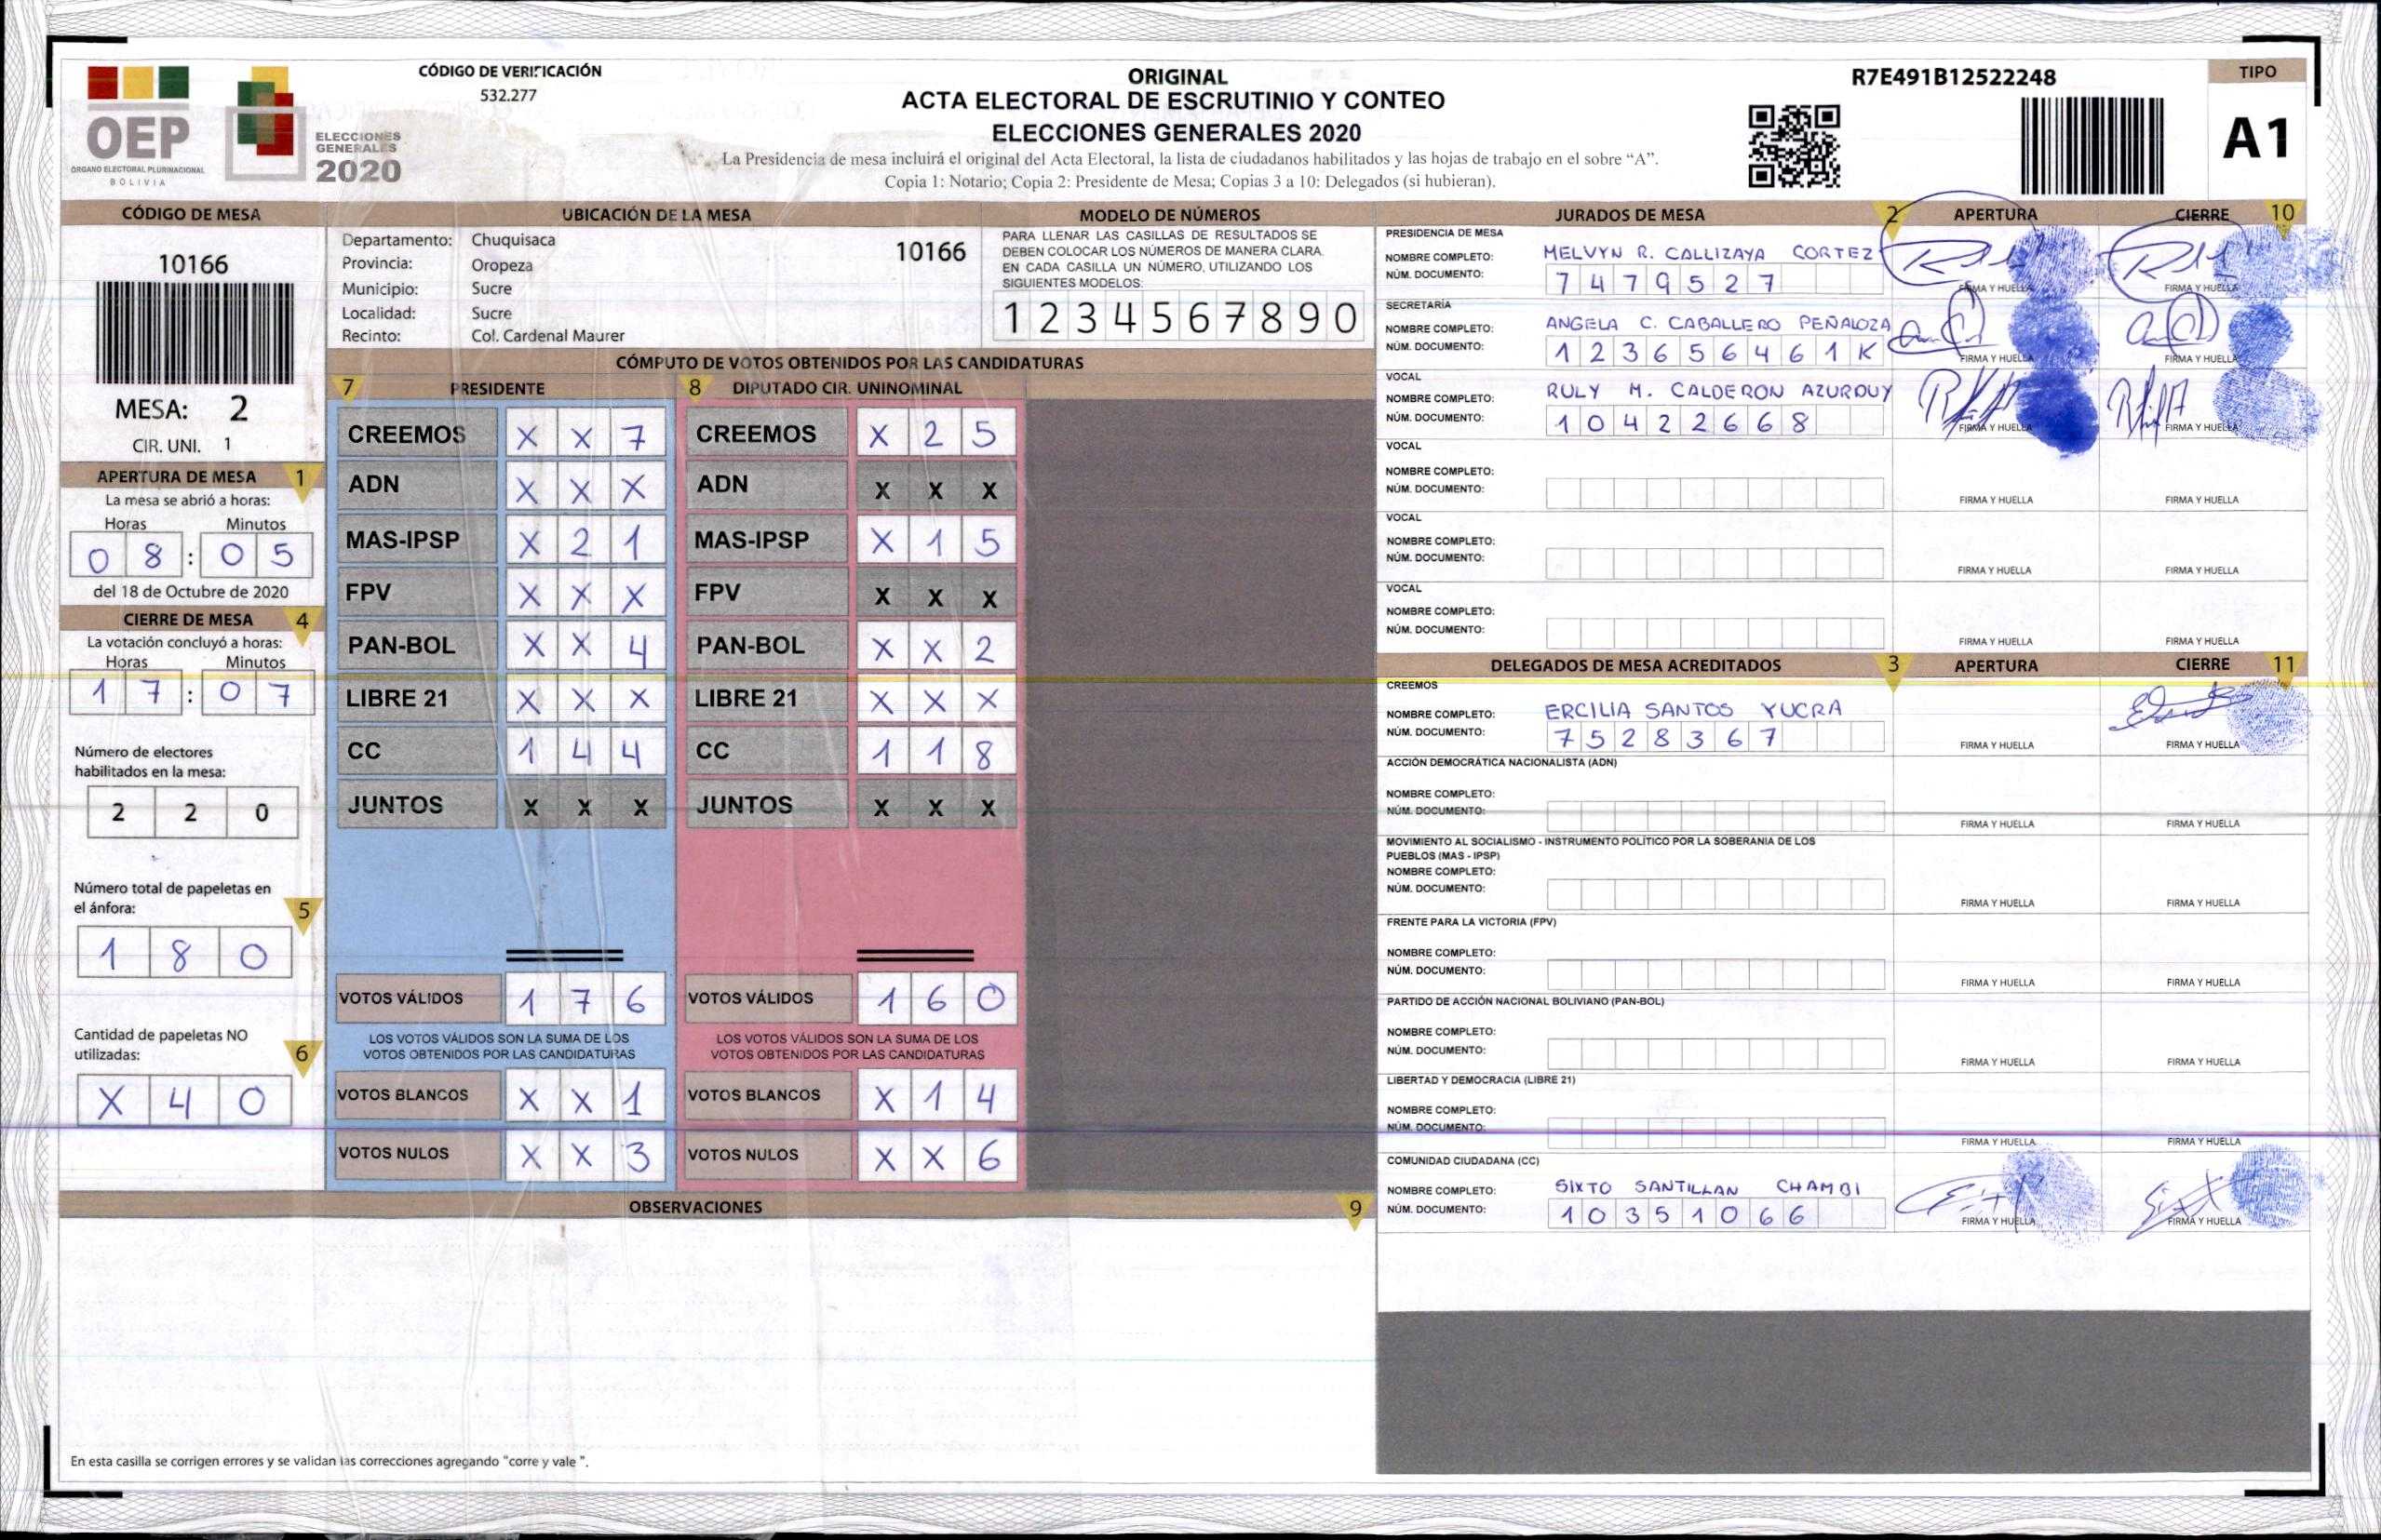 OEP
ÓRGANO ELECTORAL PLURINACIONAL
BOLIVIA
ELECCIONES
GENERALES
2020
CÓDIGO DE VERIFICACIÓN
532.277
ORIGINAL
ACTA ELECTORAL DE ESCRUTINIO Y CONTEO
ELECCIONES GENERALES 2020
La Presidencia de mesa incluirá el original del Acta Electoral, la lista de ciudadanos habilitados y las hojas de trabajo en el sobre “A”.
Copia 1: Notario; Copia 2: Presidente de Mesa; Copias 3 a 10: Delegados (si hubieran).
R7E491B12522248
TIPO
A1
CÓDIGO DE MESA
10166
MESA: 2
CIR. UNI. 1
APERTURA DE MESA 1
La mesa se abrió a horas:
Horas Minutos
0 8 : 0 5
del 18 de Octubre de 2020
CIERRE DE MESA 4
La votación concluyó a horas:
Horas Minutos
1 7 : 0 7
Número de electores
habilitados en la mesa:
2 2 0
Número total de papeletas en
el ánfora: 5
1 8 0
Cantidad de papeletas NO
utilizadas: 6
X 4 0
UBICACIÓN DE LA MESA
Departamento: Chuquisaca 10166
Provincia: Oropeza
Municipio: Sucre
Localidad: Sucre
Recinto: Col. Cardenal Maurer
MODELO DE NÚMEROS
PARA LLENAR LAS CASILLAS DE RESULTADOS SE
DEBEN COLOCAR LOS NÚMEROS DE MANERA CLARA.
EN CADA CASILLA UN NÚMERO, UTILIZANDO LOS
SIGUIENTES MODELOS:
1 2 3 4 5 6 7 8 9 0
CÓMPUTO DE VOTOS OBTENIDOS POR LAS CANDIDATURAS
7 PRESIDENTE 8 DIPUTADO CIR. UNINOMINAL
CREEMOS X X 7 CREEMOS X 2 5
ADN X X X ADN X X X
MAS-IPSP X 2 1 MAS-IPSP X 1 5
FPV X X X FPV X X X
PAN-BOL X X 4 PAN-BOL X X 2
LIBRE 21 X X X LIBRE 21 X X X
CC 1 4 4 CC 1 1 8
JUNTOS X X X JUNTOS X X X
VOTOS VÁLIDOS 1 7 6 VOTOS VÁLIDOS 1 6 0
LOS VOTOS VÁLIDOS SON LA SUMA DE LOS LOS VOTOS VÁLIDOS SON LA SUMA DE LOS
VOTOS OBTENIDOS POR LAS CANDIDATURAS VOTOS OBTENIDOS POR LAS CANDIDATURAS
VOTOS BLANCOS X X 1 VOTOS BLANCOS X 1 4
VOTOS NULOS X X 3 VOTOS NULOS X X 6
OBSERVACIONES 9
En esta casilla se corrigen errores y se validan las correcciones agregando "corre y vale ".
JURADOS DE MESA 2 APERTURA CIERRE 10
PRESIDENCIA DE MESA
NOMBRE COMPLETO: MELVYN R. CALLIZAYA CORTEZ
NÚM. DOCUMENTO: 7 4 7 9 5 2 7 FIRMA Y HUELLA FIRMA Y HUELLA
SECRETARÍA
NOMBRE COMPLETO: ANGELA C. CABALLERO PEÑALOZA
NÚM. DOCUMENTO: 1 2 3 6 5 6 4 6 1 K FIRMA Y HUELLA FIRMA Y HUELLA
VOCAL
NOMBRE COMPLETO: RULY M. CALDERON AZURDUY
NÚM. DOCUMENTO: 1 0 4 2 2 6 6 8 FIRMA Y HUELLA FIRMA Y HUELLA
VOCAL
NOMBRE COMPLETO:
NÚM. DOCUMENTO: FIRMA Y HUELLA FIRMA Y HUELLA
VOCAL
NOMBRE COMPLETO:
NÚM. DOCUMENTO: FIRMA Y HUELLA FIRMA Y HUELLA
VOCAL
NOMBRE COMPLETO:
NÚM. DOCUMENTO: FIRMA Y HUELLA FIRMA Y HUELLA
DELEGADOS DE MESA ACREDITADOS 3 APERTURA CIERRE 11
CREEMOS
NOMBRE COMPLETO: ERCILIA SANTOS YUCRA
NÚM. DOCUMENTO: 7 5 2 8 3 6 7 FIRMA Y HUELLA FIRMA Y HUELLA
ACCIÓN DEMOCRÁTICA NACIONALISTA (ADN)
NOMBRE COMPLETO:
NÚM. DOCUMENTO: FIRMA Y HUELLA FIRMA Y HUELLA
MOVIMIENTO AL SOCIALISMO - INSTRUMENTO POLÍTICO POR LA SOBERANIA DE LOS
PUEBLOS (MAS - IPSP)
NOMBRE COMPLETO:
NÚM. DOCUMENTO: FIRMA Y HUELLA FIRMA Y HUELLA
FRENTE PARA LA VICTORIA (FPV)
NOMBRE COMPLETO:
NÚM. DOCUMENTO: FIRMA Y HUELLA FIRMA Y HUELLA
PARTIDO DE ACCIÓN NACIONAL BOLIVIANO (PAN-BOL)
NOMBRE COMPLETO:
NÚM. DOCUMENTO: FIRMA Y HUELLA FIRMA Y HUELLA
LIBERTAD Y DEMOCRACIA (LIBRE 21)
NOMBRE COMPLETO:
NÚM. DOCUMENTO: FIRMA Y HUELLA FIRMA Y HUELLA
COMUNIDAD CIUDADANA (CC)
NOMBRE COMPLETO: SIXTO SANTILLAN CHAMBI
NÚM. DOCUMENTO: 1 0 3 5 1 0 6 6 FIRMA Y HUELLA FIRMA Y HUELLA